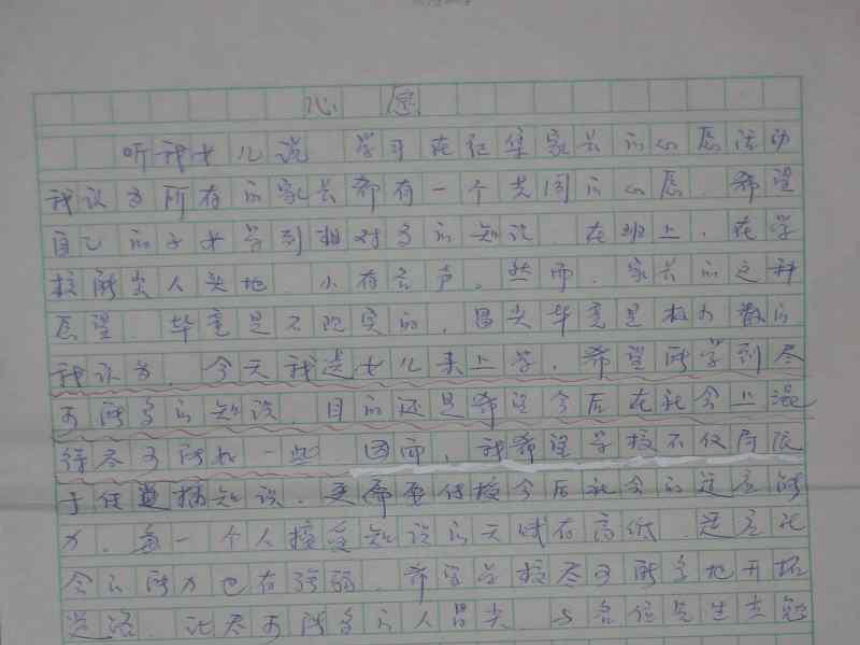 心愿
听我女儿说 学习在征集家长的心愿活动
我认为所有的家长都有一个共同的心愿. 希望
自己的子女学到相对多的知识 在班上. 在学
校能出人头地 小有名声. 然而. 家长的这种
愿望. 毕竟是不现实的. 冒尖毕竟是极少数的
我认为. 今天我送女儿来上学. 希望能学到尽
可能多的知识. 目的还是希望今后在社会上混
得尽可能好一些 因而. 我希望学校不仅局限
于传播知识. 更需要传授今后社会的适应能
力. 每一个人接受知识的天赋有高低. 适应社
会的能力也有强弱. 希望学校尽可能多地开拓
道路. 让尽可能多的人冒尖 与各位先生共勉